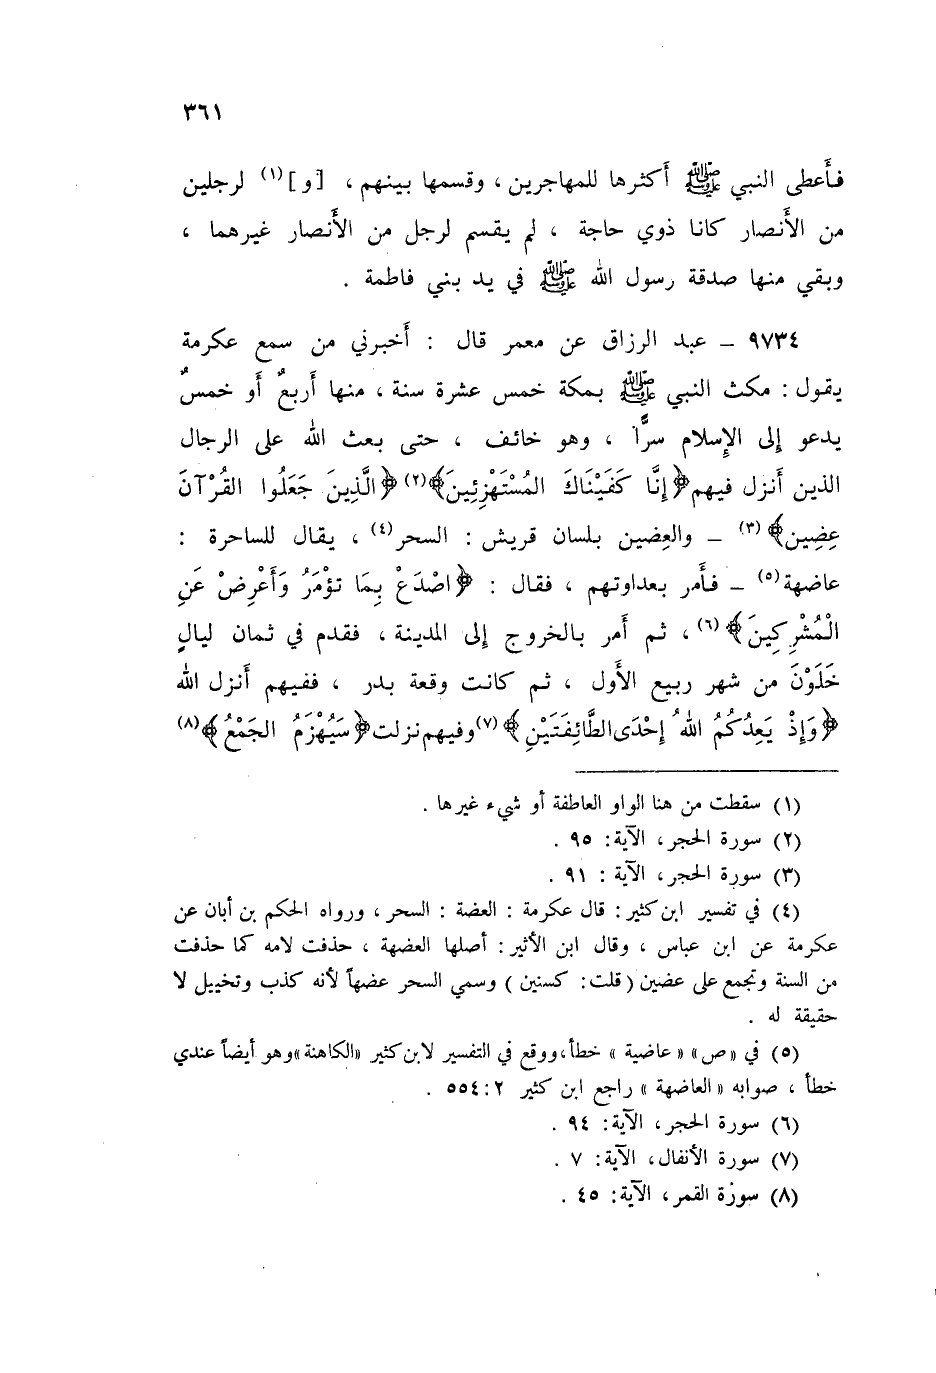 ٣٦١
فأَعطى النبي ﷺ أكثرها للمهاجرين ، وقسمها بينهم ، [و](١) لرجلين
من الأَنصار كانا ذوي حاجة ، لم يقسم لرجل من الأَنصار غيرهما ،
وبقي منها صدقة رسول الله ﷺ في يد بني فاطمة .
٩٧٣٤ ـ عبد الرزاق عن معمر قال : أَخبرني من سمع عكرمة
يقول : مكث النبي ﷺ بمكة خمس عشرة سنة ، منها أَربعٌ أَو خمسٌ
يدعو إلى الإسلام سرًّا ، وهو خائف ، حتى بعث الله على الرجال
الذين أَنزل فيهم ﴿إِنَّا كَفَيْنَاكَ المُسْتَهْزِئِينَ﴾(٢) ﴿الَّذِينَ جَعَلُوا القُرْآنَ
عِضِين﴾(٣) ـ والعِضين بلسان قريش : السحر(٤) ، يقال للساحرة :
عاضهة(٥) ـ فأَمر بعداوتهم ، فقال : ﴿اصْدَعْ بِمَا تؤْمَرُ وَأَعْرِضْ عَنِ
الْمُشْرِكِينَ﴾(٦) ، ثم أَمر بالخروج إلى المدينة ، فقدم في ثمان ليالٍ
خَلَوْنَ من شهر ربيع الأَول ، ثم كانت وقعة بدر ، ففيهم أَنزل الله
﴿وَإِذْ يَعِدُكُمُ اللهُ إِحْدَى الطَّائِفَتَيْنِ﴾(٧) وفيهم نزلت ﴿سَيُهْزَمُ الجَمْعُ﴾(٨)
(١) سقطت من هنا الواو العاطفة أو شيء غيرها .
(٢) سورة الحجر ، الآية : ٩٥ .
(٣) سورة الحجر ، الآية : ٩١ .
(٤) في تفسير ابن كثير : قال عكرمة : العضة : السحر ، ورواه الحكم بن أبان عن
عكرمة عن ابن عباس ، وقال ابن الأثير : أصلها العضهة ، حذفت لامه كما حذفت
من السنة وتجمع على عضين ( قلت : كسنين ) وسمي السحر عضهاً لأنه كذب وتخييل لا
حقيقة له .
(٥) في «ص» «عاضية» خطأ ، ووقع في التفسير لابن كثير «الكاهنة» وهو أيضاً عندي
خطأ ، صوابه «العاضهة» راجع ابن كثير ٢ : ٥٥٤ .
(٦) سورة الحجر ، الآية : ٩٤ .
(٧) سورة الأنفال ، الآية : ٧ .
(٨) سورة القمر ، الآية : ٤٥ .